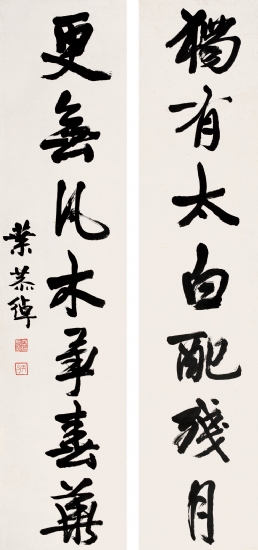 獨有太白配殘月
更無凡木爭春華
葉恭綽